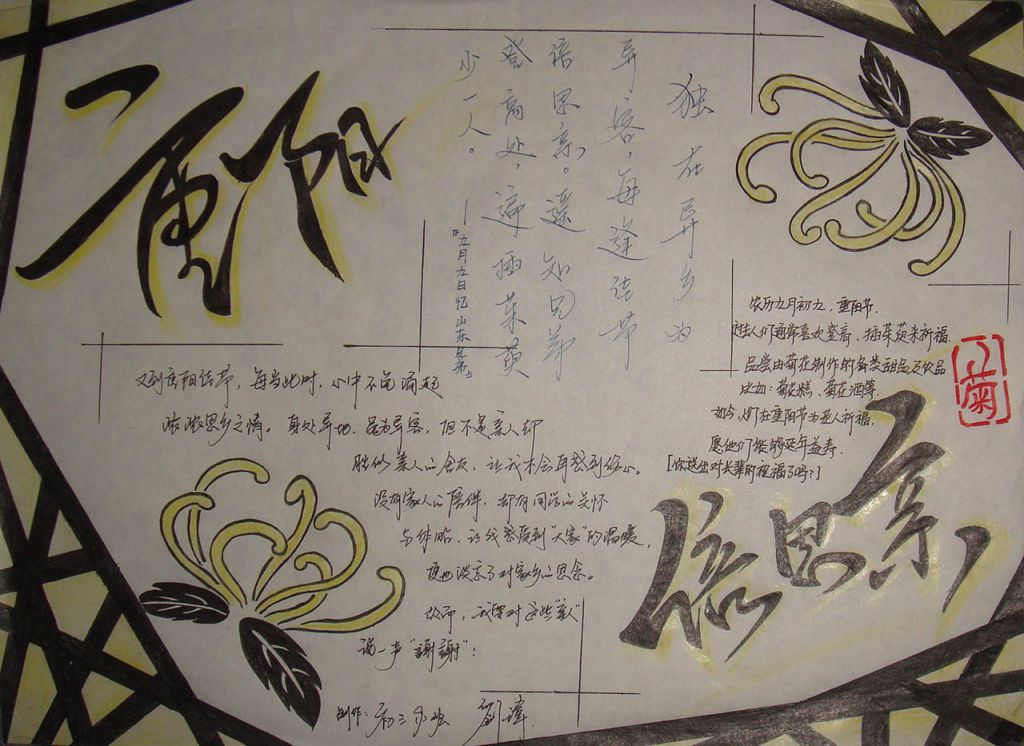 重阳
独在异乡为
异客，每逢佳节
倍思亲。遥知兄弟
登高处，遍插茱萸
少一人。
——《九月九日忆山东兄弟》
农历九月初九，重阳节.
过去人们通常喜欢登高、插茱萸来祈福.
品尝由菊花制作的各类甜品及饮品
比如：菊花糕、菊花酒等.
如今,人们在重阳节为老人祈福,
愿他们能够延年益寿.
[你送出对长辈的祝福了吗?]
菊
又到重阳佳节，每当此时，心中不免涌起
浓浓思乡之情。身处异地，虽为异客，但不是亲人却
胜似亲人的会友，让我不会再感到伤心。
没有家人的陪伴，却有同学的关怀
与体贴，让我感受到"大家"的温暖，
便也淡京了对家乡的思念。
然而，我要对这些"亲人"
说一声"謝謝"：
倍思亲
制作：初三